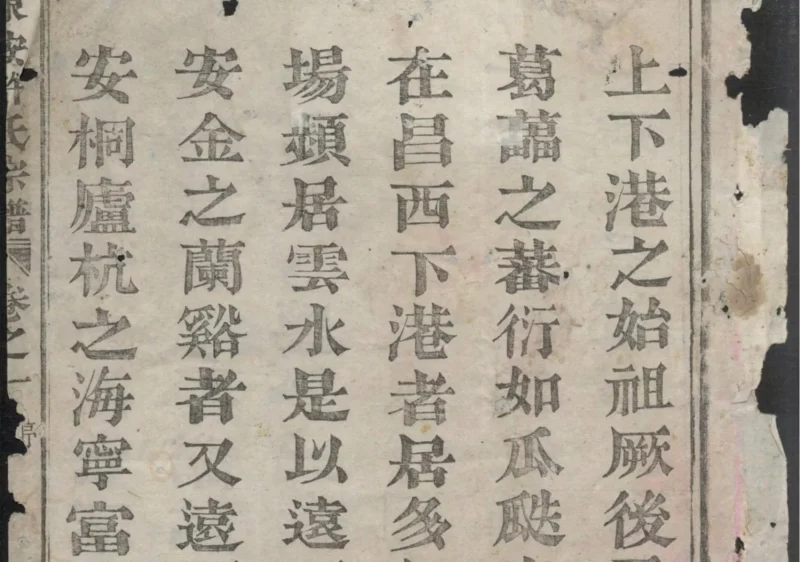 上下港之始祖厥後
葛藟之蕃衍如瓜瓞
在昌西下港者居多
場居雲水是以遠
安金之蘭谿者又遠
安桐廬杭之海寧富
氏宗譜 卷之一